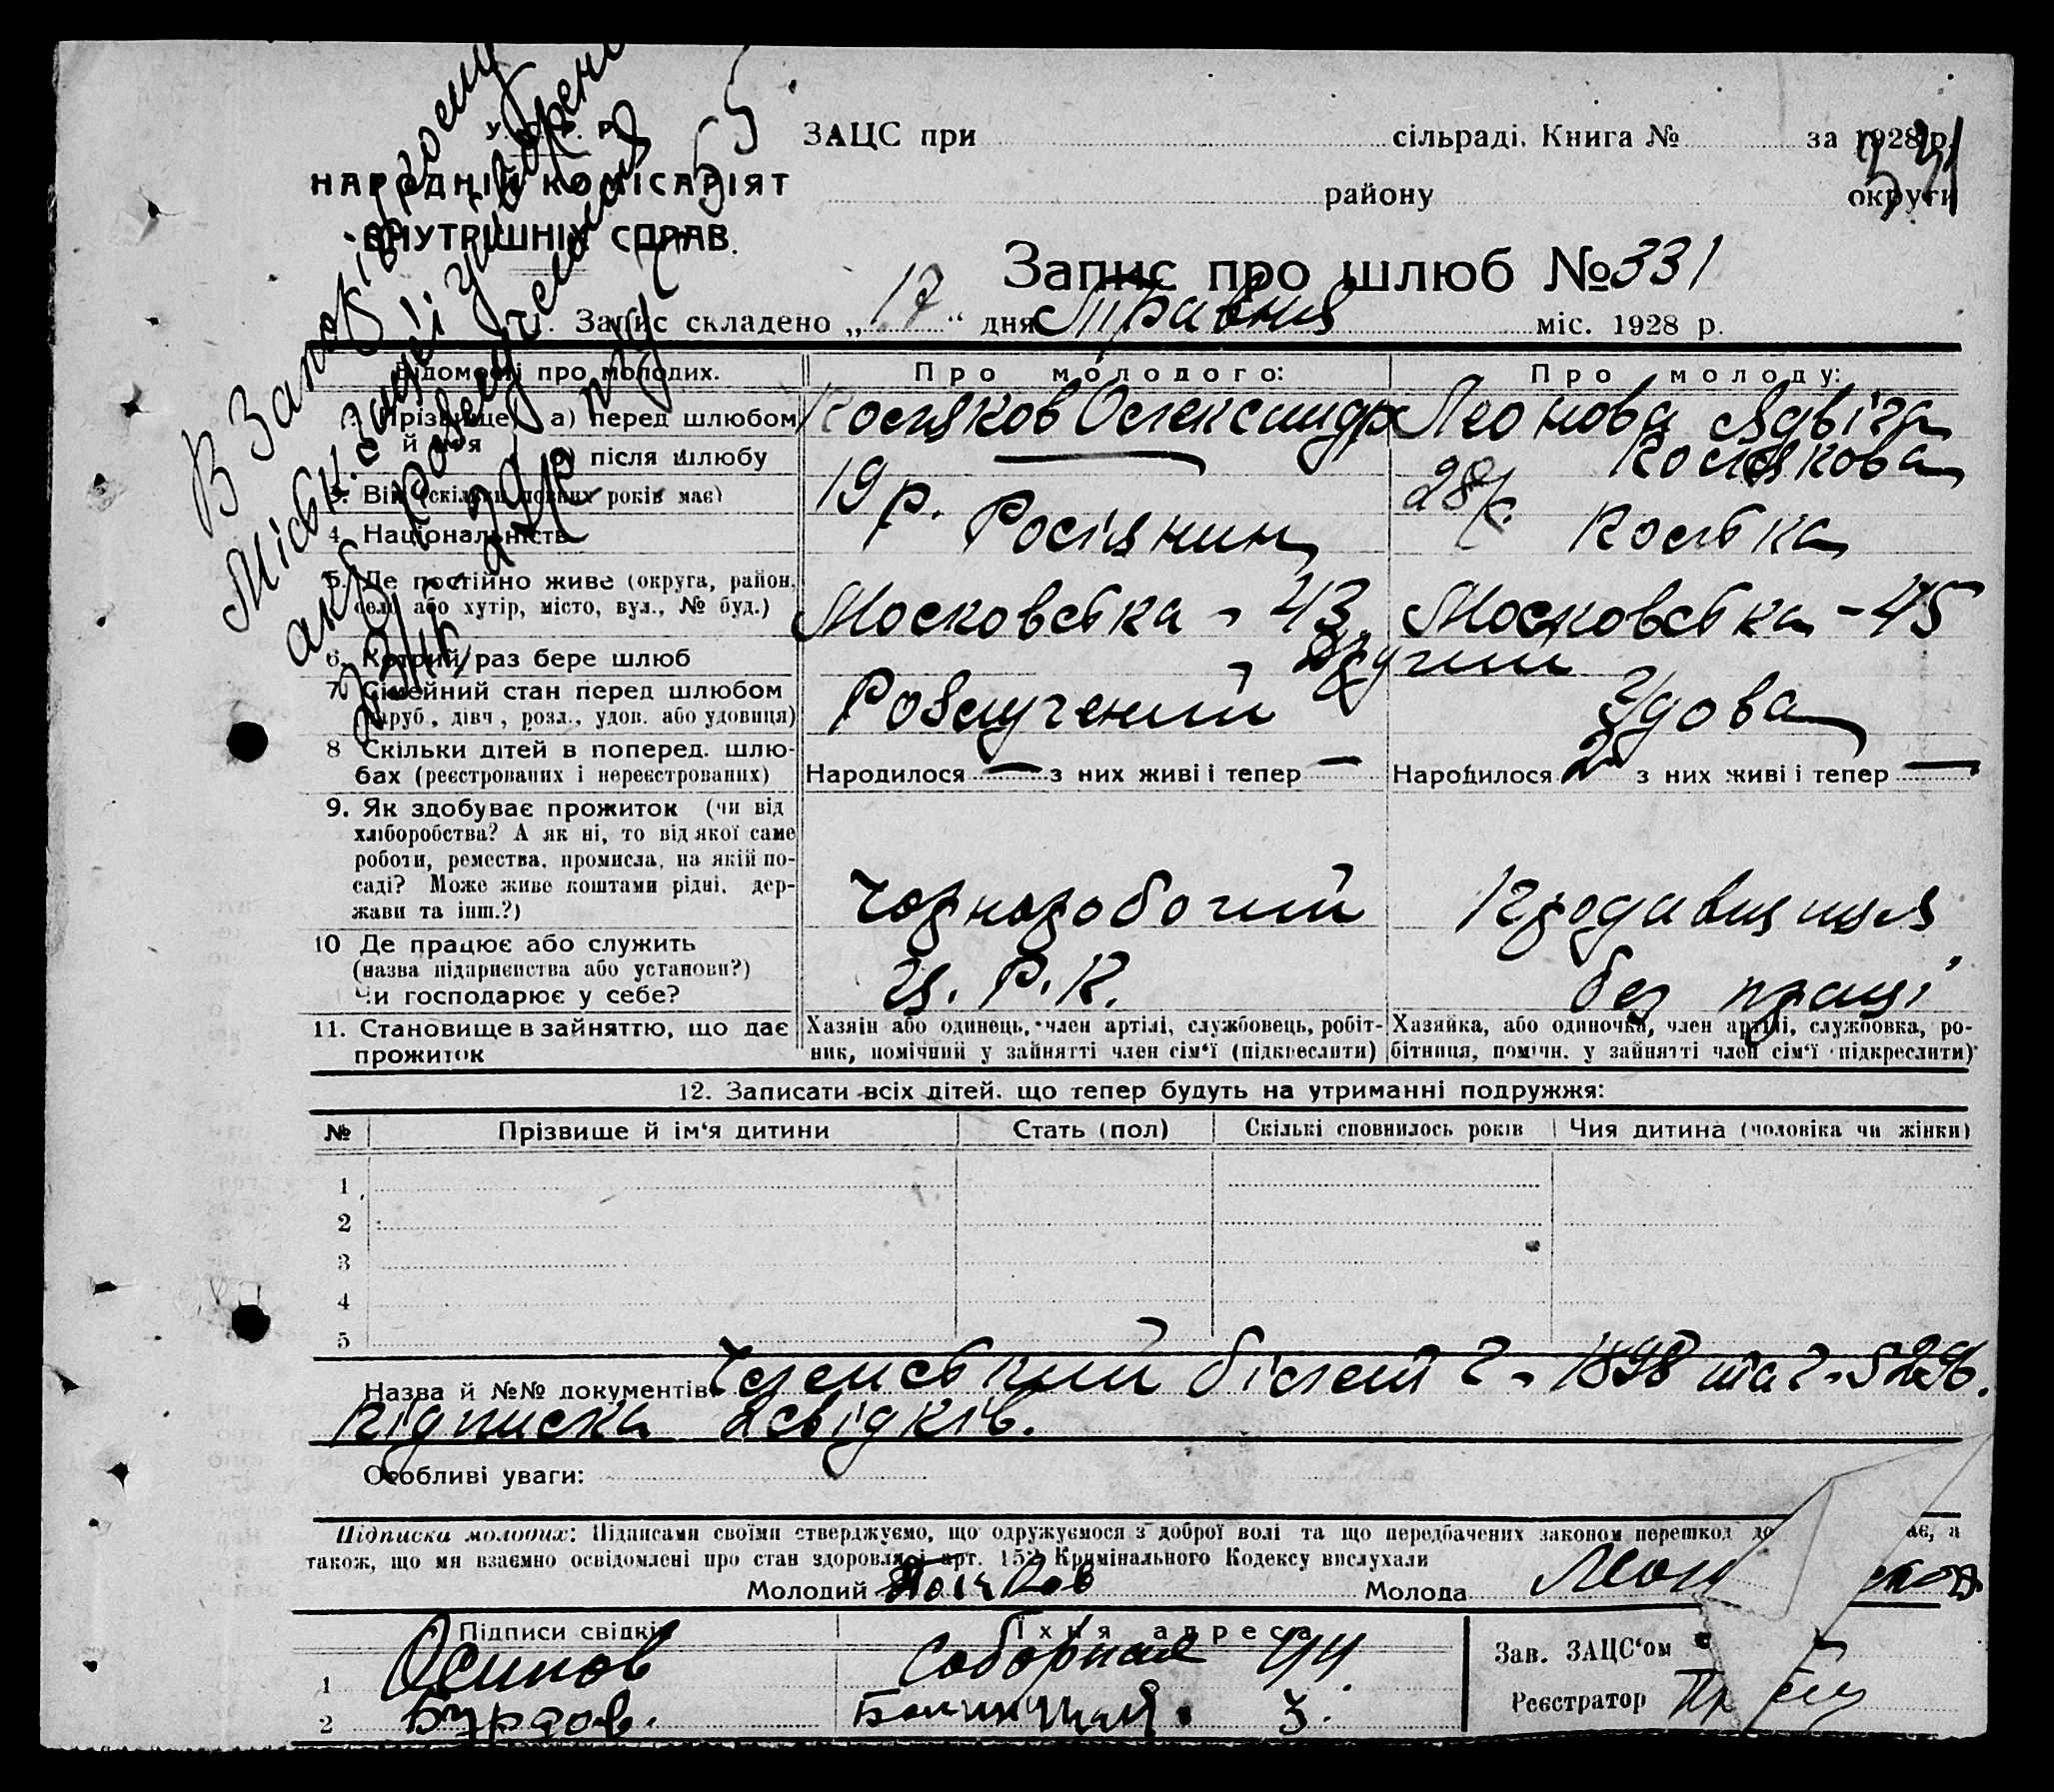 У. С. Р. Р.
НАРОДНІЙ КОМІСАРІЯТ
ВНУТРІШНІХ СПРАВ.
ЗАЦС при сільраді. Книга № за 1928 р.
району округи
331
Запис про шлюб № 331
1. Запис складено „17“ дня Травня міс. 1928 р.
В Запоріз
Відомості про молодих. Про молодого: Про молоду:
2. Прізвище й ім'я а) перед шлюбом Косяков Олександр Леонова Ядвіга
б) після шлюбу Косякова
3. Вік (скільки повних років має) 19 р. 28 р.
4. Національність Росіянин
5. Де постійно живе (округа, район, село або хутір, місто, вул., № буд.) Московська - 43 Московська - 45
6. Котрий раз бере шлюб Другий
7. Сімейний стан перед шлюбом (паруб., дівч., розл., удов. або удовиця) Розлучений Удова
8 Скільки дітей в поперед. шлюбах (реєстрованих і нереєстрованих) Народилося — з них живі і тепер — Народилося 2 з них живі і тепер —
9. Як здобуває прожиток (чи від
хліборобства? А як ні, то від якої саме
роботи, ремества, промисла, на якій по-
саді? Може живе коштами рідні, дер-
жави та інш.?) Чорноробочий Продавщиця
10 Де працює або служить
(назва підприємства або установи?) Ц. Р. К. без праці
Чи господарює у себе?
11. Становище в зайняттю, що дає прожиток
Хазяін або одинець, член артілі, службовець, робіт-
ник, помічний у зайнятті член сім'ї (підкреслити)
Хазяйка, або одиночка, член артілі, службовка, ро-
бітниця, помічн. у зайнятті член сім'ї (підкреслити)
12. Записати всіх дітей, що тепер будуть на утриманні подружжя:
№ Прізвище й ім'я дитини Стать (пол) Скількі сповнилось років Чия дитина (чоловіка чи жінки)
1
2
3
4
5
Назва й №№ документів Членський білет ч - 1898 та ч - 5296.
підписка 2 свідків.
Особливі уваги:
Підписки молодих: Підписами своїми стверджуємо, що одружуємося з доброї волі та що передбачених законом перешкод
також, що ми взаємно освідомлені про стан здоровля і арт. 152 Кримінального Кодексу вислухали
Молодий Косяков Молода
Підписи свідків Їхня адреса
1 Осипов Соборная 44
2 3.
Зав. ЗАЦС'ом
Реєстратор